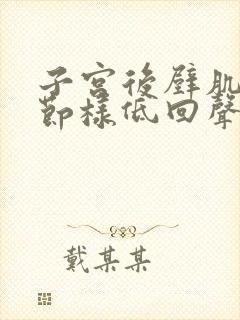 子宮後壁肌
節樣低回聲
戴某某